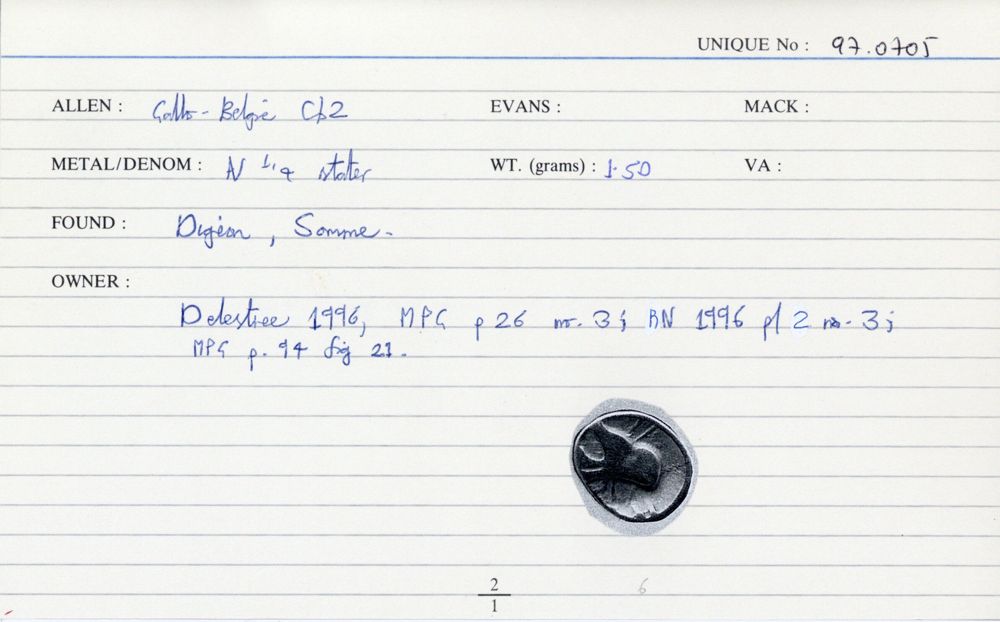 UNIQUE No : 97.0705
ALLEN : Gallo-Belgic Cb2 EVANS : MACK :
METAL/DENOM : N 1/4 stater WT. (grams) : 1.50 VA :
FOUND : Digeon, Somme.
OWNER :
Delestree 1996, MPG p 26 no. 3; BN 1996 pl 2 no. 3;
MPG p. 94 fig 21.
2
1
6